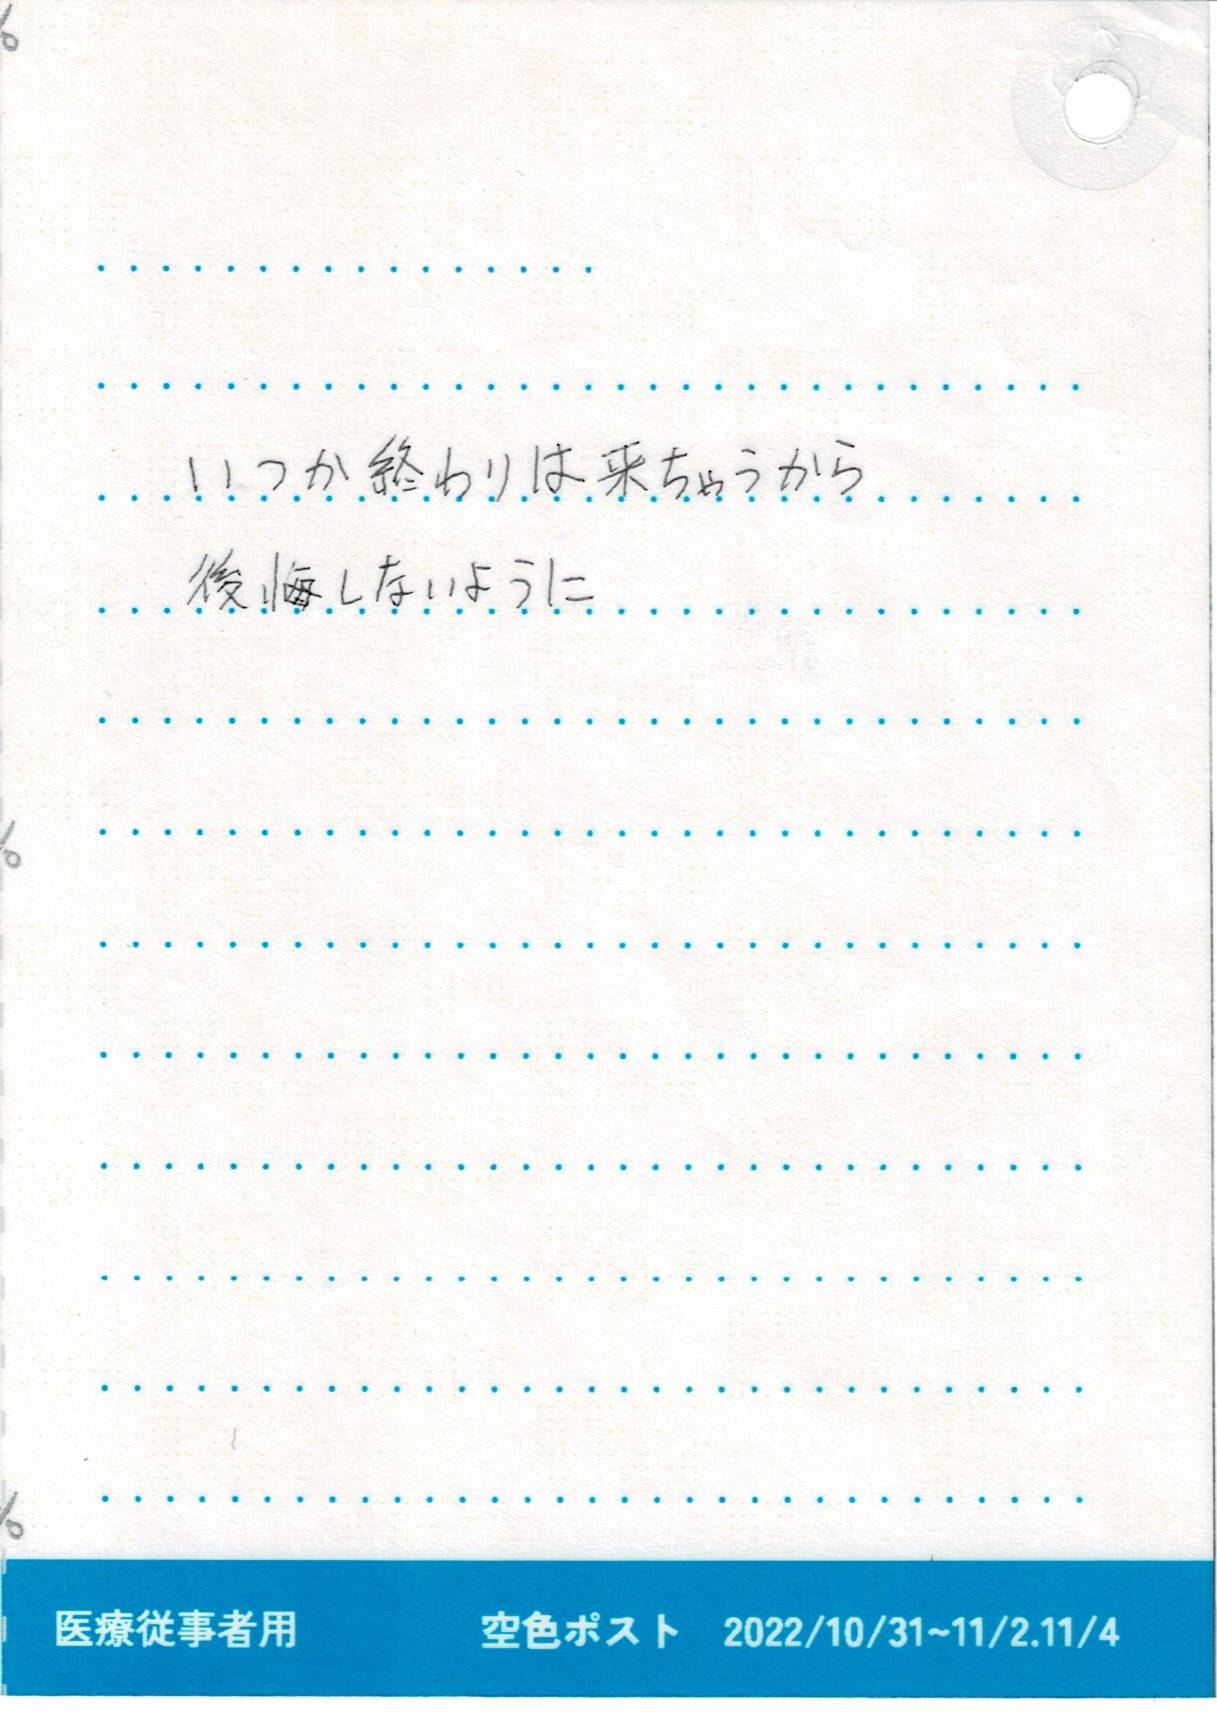 いつか終わりは来ちゃうから
後悔しないように
医療従事者用 空色ポスト 2022/10/31~11/2.11/4